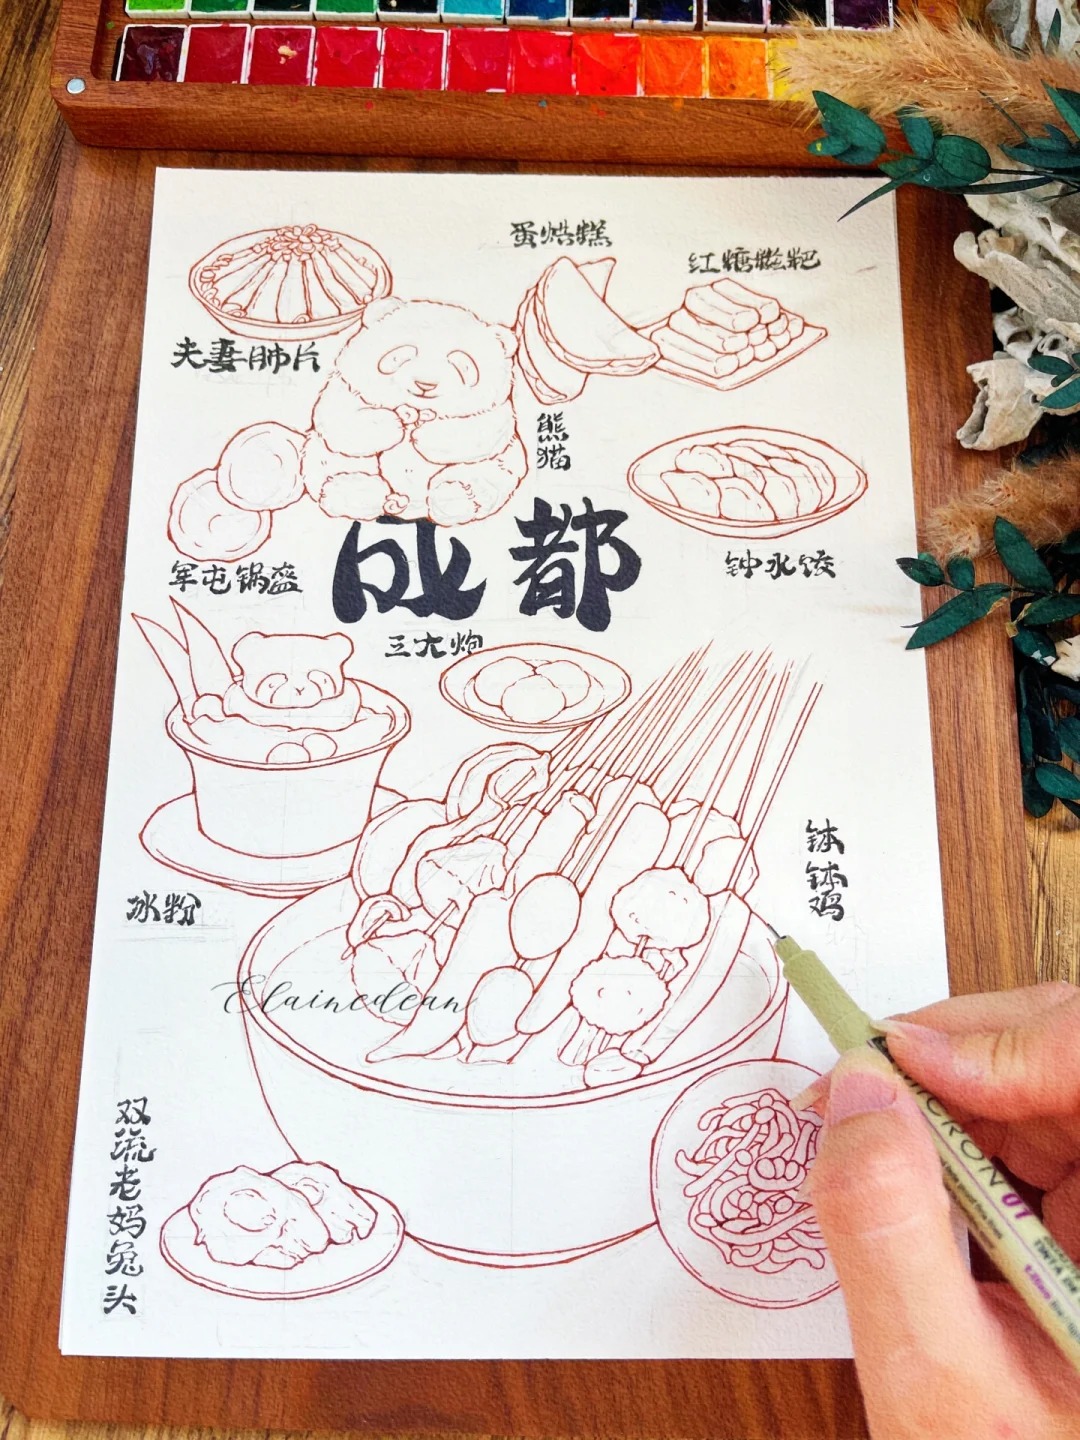 蛋烘糕
红糖糍粑
夫妻肺片
熊猫
成都
军屯锅盔
钟水饺
三大炮
冰粉
钵钵鸡
Elainedean
双流老妈兔头
MICRON 01